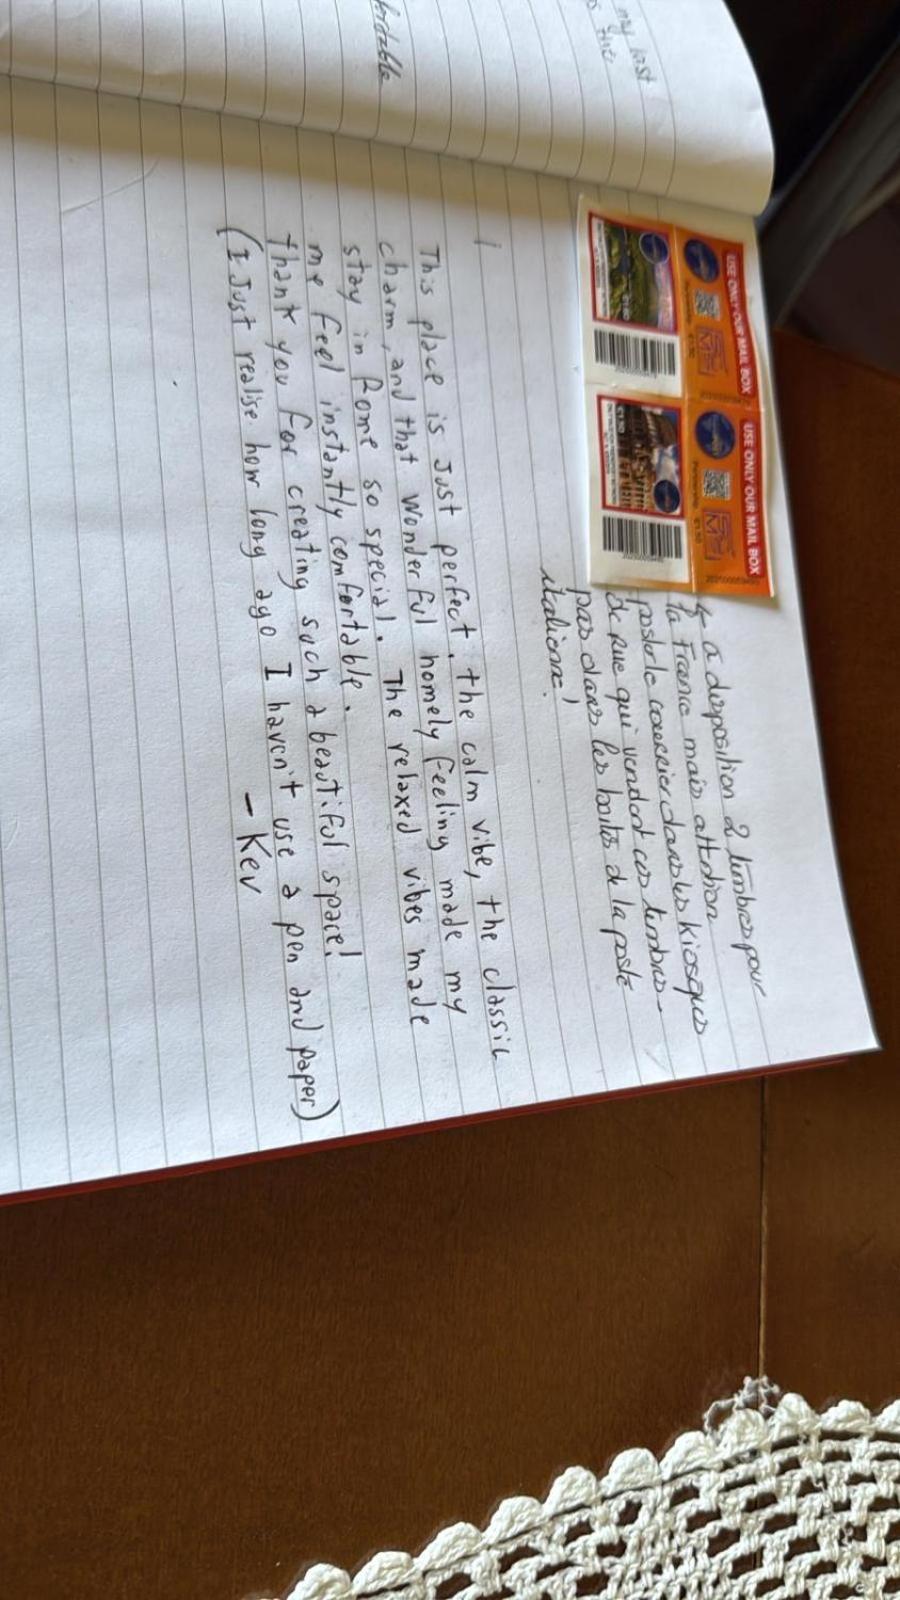 my last
the
fordable
USE ONLY OUR MAIL BOX
USE ONLY OUR MAIL BOX
← a disposition 2 timbres pour
la France mais attention
poster le courrier dans les kiosques
de rue qui vendent ces timbres
pas dans les boites de la poste
italienne!
This place is Just perfect. the calm vibe, the classic
charm, and that wonderful homely feeling made my
stay in Rome so special. The relaxed vibes made
me feel instantly comfortable.
thank you for creating such a beautiful space!
(I Just realise how long ago I haven't use a pen and paper)
– Kev